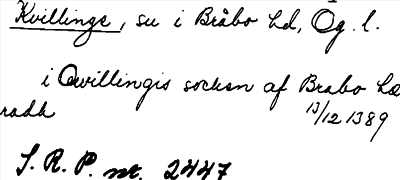 Kvillinge, su i Bråbo hd, Ög. l.
i Qwillingis socken af Brabo hæ
radh
13/12 1389
S. R. P. nr. 2447